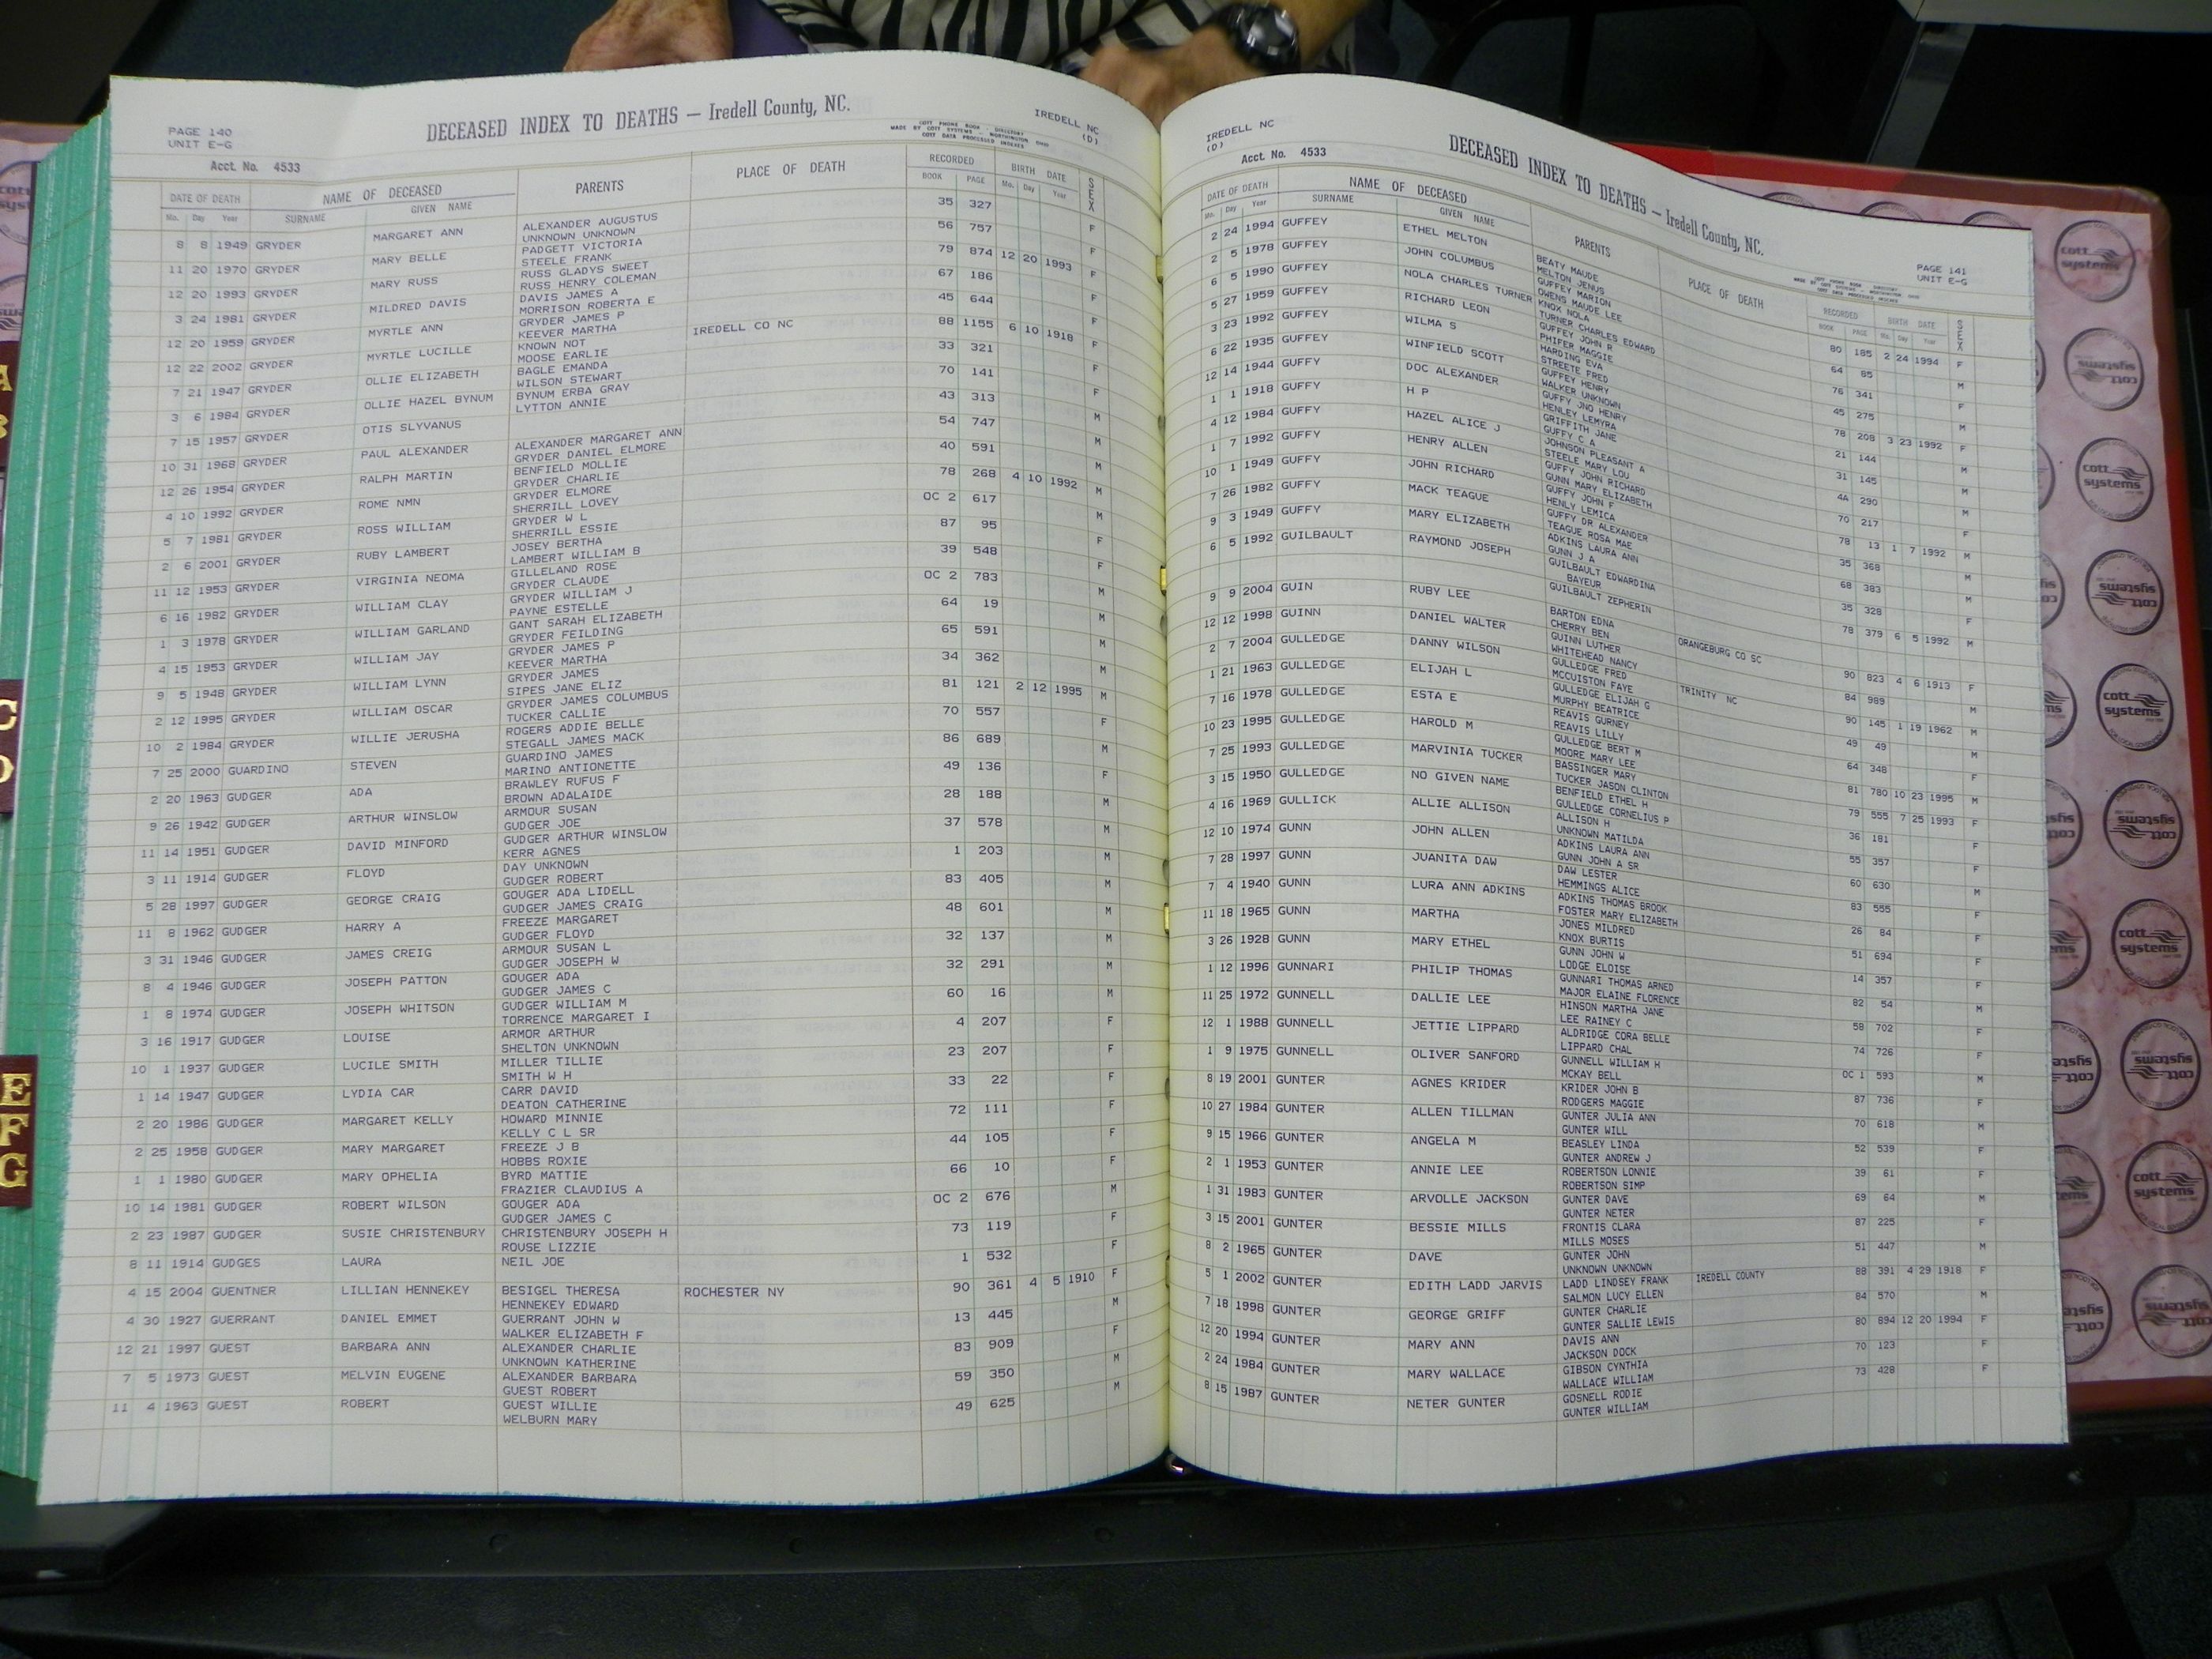 PAGE 140
UNIT E-G
DECEASED INDEX TO DEATHS — Iredell County, NC.
IREDELL NC
(D)
COTT PHONE BOOK - DIRECTORY
MADE BY COTT SYSTEMS - WORTHINGTON OHIO
COTT DATA PROCESSED INDEXES
Acct. No. 4533
DATE OF DEATH NAME OF DECEASED PARENTS PLACE OF DEATH RECORDED BIRTH DATE SEX
Mo. Day Year SURNAME GIVEN NAME BOOK PAGE Mo. Day Year
8 8 1949 GRYDER MARGARET ANN ALEXANDER AUGUSTUS 35 327 F
UNKNOWN UNKNOWN
11 20 1970 GRYDER MARY BELLE PADGETT VICTORIA 56 757 F
STEELE FRANK
12 20 1993 GRYDER MARY RUSS RUSS GLADYS SWEET 79 874 12 20 1993 F
RUSS HENRY COLEMAN
3 24 1981 GRYDER MILDRED DAVIS DAVIS JAMES A 67 186 F
MORRISON ROBERTA E
12 20 1959 GRYDER MYRTLE ANN GRYDER JAMES P 45 644 F
KEEVER MARTHA
12 22 2002 GRYDER MYRTLE LUCILLE KNOWN NOT IREDELL CO NC 88 1155 6 10 1918 F
MOOSE EARLIE
7 21 1947 GRYDER OLLIE ELIZABETH BAGLE EMANDA 33 321 F
WILSON STEWART
3 6 1984 GRYDER OLLIE HAZEL BYNUM BYNUM ERBA GRAY 70 141 F
LYTTON ANNIE
7 15 1957 GRYDER OTIS SLYVANUS 43 313 M
10 31 1968 GRYDER PAUL ALEXANDER ALEXANDER MARGARET ANN 54 747 M
GRYDER DANIEL ELMORE
12 26 1954 GRYDER RALPH MARTIN BENFIELD MOLLIE 40 591 M
GRYDER CHARLIE
4 10 1992 GRYDER ROME NMN GRYDER ELMORE 78 268 4 10 1992 M
SHERRILL LOVEY
5 7 1981 GRYDER ROSS WILLIAM GRYDER W L OC 2 617 M
SHERRILL ESSIE
2 6 2001 GRYDER RUBY LAMBERT JOSEY BERTHA 87 95 F
LAMBERT WILLIAM B
11 12 1953 GRYDER VIRGINIA NEOMA GILLELAND ROSE 39 548 F
GRYDER CLAUDE
6 16 1982 GRYDER WILLIAM CLAY GRYDER WILLIAM J OC 2 783 M
PAYNE ESTELLE
1 3 1978 GRYDER WILLIAM GARLAND GANT SARAH ELIZABETH 64 19 M
GRYDER FEILDING
4 15 1953 GRYDER WILLIAM JAY GRYDER JAMES P 65 591 M
KEEVER MARTHA
9 5 1948 GRYDER WILLIAM LYNN GRYDER JAMES 34 362 M
SIPES JANE ELIZ
2 12 1995 GRYDER WILLIAM OSCAR GRYDER JAMES COLUMBUS 81 121 2 12 1995 M
TUCKER CALLIE
10 2 1984 GRYDER WILLIE JERUSHA ROGERS ADDIE BELLE 70 557 F
STEGALL JAMES MACK
7 25 2000 GUARDINO STEVEN GUARDINO JAMES 86 689 M
MARINO ANTIONETTE
2 20 1963 GUDGER ADA BRAWLEY RUFUS F 49 136 F
BROWN ADALAIDE
9 26 1942 GUDGER ARTHUR WINSLOW ARMOUR SUSAN 28 188 M
GUDGER JOE
11 14 1951 GUDGER DAVID MINFORD GUDGER ARTHUR WINSLOW 37 578 M
KERR AGNES
3 11 1914 GUDGER FLOYD DAY UNKNOWN 1 203 M
GUDGER ROBERT
5 28 1997 GUDGER GEORGE CRAIG GOUGER ADA LIDELL 83 405 M
GUDGER JAMES CRAIG
11 8 1962 GUDGER HARRY A FREEZE MARGARET 48 601 M
GUDGER FLOYD
3 31 1946 GUDGER JAMES CREIG ARMOUR SUSAN L 32 137 M
GUDGER JOSEPH W
8 4 1946 GUDGER JOSEPH PATTON GOUGER ADA 32 291 M
GUDGER JAMES C
1 8 1974 GUDGER JOSEPH WHITSON GUDGER WILLIAM M 60 16 M
TORRENCE MARGARET I
3 16 1917 GUDGER LOUISE ARMOR ARTHUR 4 207 F
SHELTON UNKNOWN
10 1 1937 GUDGER LUCILE SMITH MILLER TILLIE 23 207 F
SMITH W H
1 14 1947 GUDGER LYDIA CAR CARR DAVID 33 22 F
DEATON CATHERINE
2 20 1986 GUDGER MARGARET KELLY HOWARD MINNIE 72 111 F
KELLY C L SR
2 25 1958 GUDGER MARY MARGARET FREEZE J B 44 105 F
HOBBS ROXIE
1 1 1980 GUDGER MARY OPHELIA BYRD MATTIE 66 10 F
FRAZIER CLAUDIUS A
10 14 1981 GUDGER ROBERT WILSON GOUGER ADA OC 2 676 M
GUDGER JAMES C
2 23 1987 GUDGER SUSIE CHRISTENBURY CHRISTENBURY JOSEPH H 73 119 F
ROUSE LIZZIE
8 11 1914 GUDGES LAURA NEIL JOE 1 532 F
4 15 2004 GUENTNER LILLIAN HENNEKEY BESIGEL THERESA ROCHESTER NY 90 361 4 5 1910 F
HENNEKEY EDWARD
4 30 1927 GUERRANT DANIEL EMMET GUERRANT JOHN W 13 445 M
WALKER ELIZABETH F
12 21 1997 GUEST BARBARA ANN ALEXANDER CHARLIE 83 909 F
UNKNOWN KATHERINE
7 5 1973 GUEST MELVIN EUGENE ALEXANDER BARBARA 59 350 M
GUEST ROBERT
11 4 1963 GUEST ROBERT GUEST WILLIE 49 625 M
WELBURN MARY
IREDELL NC
(D)
DECEASED INDEX TO DEATHS — Iredell County, NC.
PAGE 141
UNIT E-G
Acct. No. 4533
DATE OF DEATH NAME OF DECEASED PARENTS PLACE OF DEATH RECORDED BIRTH DATE SEX
Mo. Day Year SURNAME GIVEN NAME BOOK PAGE Mo. Day Year
2 24 1994 GUFFEY ETHEL MELTON BEATY MAUDE 80 185 2 24 1994 F
MELTON JENUS
2 5 1978 GUFFEY JOHN COLUMBUS GUFFEY MARION 64 85 M
OWENS MAUDE LEE
6 5 1990 GUFFEY NOLA CHARLES TURNER KNOX NOLA 76 341 F
TURNER CHARLES EDWARD
5 27 1959 GUFFEY RICHARD LEON GUFFEY JOHN R 45 275 M
PHIFER MAGGIE
3 23 1992 GUFFEY WILMA S HARDING EVA 78 208 3 23 1992 F
STREETE FRED
6 22 1935 GUFFEY WINFIELD SCOTT GUFFEY HENRY 21 144 M
WALKER UNKNOWN
12 14 1944 GUFFY DOC ALEXANDER GUFFY JNO HENRY 31 145 M
HENLEY LEMYRA
1 1 1918 GUFFY H P GRIFFITH JANE 4A 290 M
GUFFY C A
4 12 1984 GUFFY HAZEL ALICE J JOHNSON PLEASANT A 70 217 F
STEELE MARY LOU
1 7 1992 GUFFY HENRY ALLEN GUFFY JOHN RICHARD 78 13 1 7 1992 M
GUNN MARY ELIZABETH
10 1 1949 GUFFY JOHN RICHARD GUFFY JOHN F 35 368 M
HENLY LEMICA
7 26 1982 GUFFY MACK TEAGUE GUFFY DR ALEXANDER 68 383 M
TEAGUE ROSA MAE
9 3 1949 GUFFY MARY ELIZABETH ADKINS LAURA ANN 35 328 F
GUNN J A
6 5 1992 GUILBAULT RAYMOND JOSEPH GUILBAULT EDWARDINA 78 379 6 5 1992 M
BAYEUR
GUILBAULT ZEPHERIN
9 9 2004 GUIN RUBY LEE BARTON EDNA ORANGEBURG CO SC 90 823 4 6 1913 F
CHERRY BEN
12 12 1998 GUINN DANIEL WALTER GUINN LUTHER 84 989 M
WHITEHEAD NANCY
2 7 2004 GULLEDGE DANNY WILSON GULLEDGE FRED TRINITY NC 90 145 1 19 1962 M
MCCUISTON FAYE
1 21 1963 GULLEDGE ELIJAH L GULLEDGE ELIJAH G 49 49 M
MURPHY BEATRICE
7 16 1978 GULLEDGE ESTA E REAVIS GURNEY 64 348 F
REAVIS LILLY
10 23 1995 GULLEDGE HAROLD M GULLEDGE BERT M 81 780 10 23 1995 M
MOORE MARY LEE
7 25 1993 GULLEDGE MARVINIA TUCKER BASSINGER MARY 79 555 7 25 1993 F
TUCKER JASON CLINTON
3 15 1950 GULLEDGE NO GIVEN NAME BENFIELD ETHEL H 36 181 F
GULLEDGE CORNELIUS P
4 16 1969 GULLICK ALLIE ALLISON ALLISON H 55 357 F
UNKNOWN MATILDA
12 10 1974 GUNN JOHN ALLEN ADKINS LAURA ANN 60 630 M
GUNN JOHN A SR
7 28 1997 GUNN JUANITA DAW DAW LESTER 83 555 F
HEMMINGS ALICE
7 4 1940 GUNN LURA ANN ADKINS ADKINS THOMAS BROOK 26 84 F
FOSTER MARY ELIZABETH
11 18 1965 GUNN MARTHA JONES MILDRED 51 694 F
KNOX BURTIS
3 26 1928 GUNN MARY ETHEL GUNN JOHN W 14 357 F
LODGE ELOISE
1 12 1996 GUNNARI PHILIP THOMAS GUNNARI THOMAS ARNED 82 54 M
MAJOR ELAINE FLORENCE
11 25 1972 GUNNELL DALLIE LEE HINSON MARTHA JANE 58 702 F
LEE RAINEY C
12 1 1988 GUNNELL JETTIE LIPPARD ALDRIDGE CORA BELLE 74 726 F
LIPPARD CHAL
1 9 1975 GUNNELL OLIVER SANFORD GUNNELL WILLIAM H OC 1 593 M
MCKAY BELL
8 19 2001 GUNTER AGNES KRIDER KRIDER JOHN B 87 736 F
RODGERS MAGGIE
10 27 1984 GUNTER ALLEN TILLMAN GUNTER JULIA ANN 70 618 M
GUNTER WILL
9 15 1966 GUNTER ANGELA M BEASLEY LINDA 52 539 F
GUNTER ANDREW J
2 1 1953 GUNTER ANNIE LEE ROBERTSON LONNIE 39 61 F
ROBERTSON SIMP
1 31 1983 GUNTER ARVOLLE JACKSON GUNTER DAVE 69 64 M
GUNTER NETER
3 15 2001 GUNTER BESSIE MILLS FRONTIS CLARA 87 225 F
MILLS MOSES
8 2 1965 GUNTER DAVE GUNTER JOHN 51 447 M
UNKNOWN UNKNOWN
5 1 2002 GUNTER EDITH LADD JARVIS LADD LINDSEY FRANK IREDELL COUNTY 88 391 4 29 1918 F
SALMON LUCY ELLEN
7 18 1998 GUNTER GEORGE GRIFF GUNTER CHARLIE 84 570 M
GUNTER SALLIE LEWIS
12 20 1994 GUNTER MARY ANN DAVIS ANN 80 894 12 20 1994 F
JACKSON DOCK
2 24 1984 GUNTER MARY WALLACE GIBSON CYNTHIA 70 123 F
WALLACE WILLIAM
8 15 1987 GUNTER NETER GUNTER GOSNELL RODIE 73 428 F
GUNTER WILLIAM
cott systems
C
E
F
G